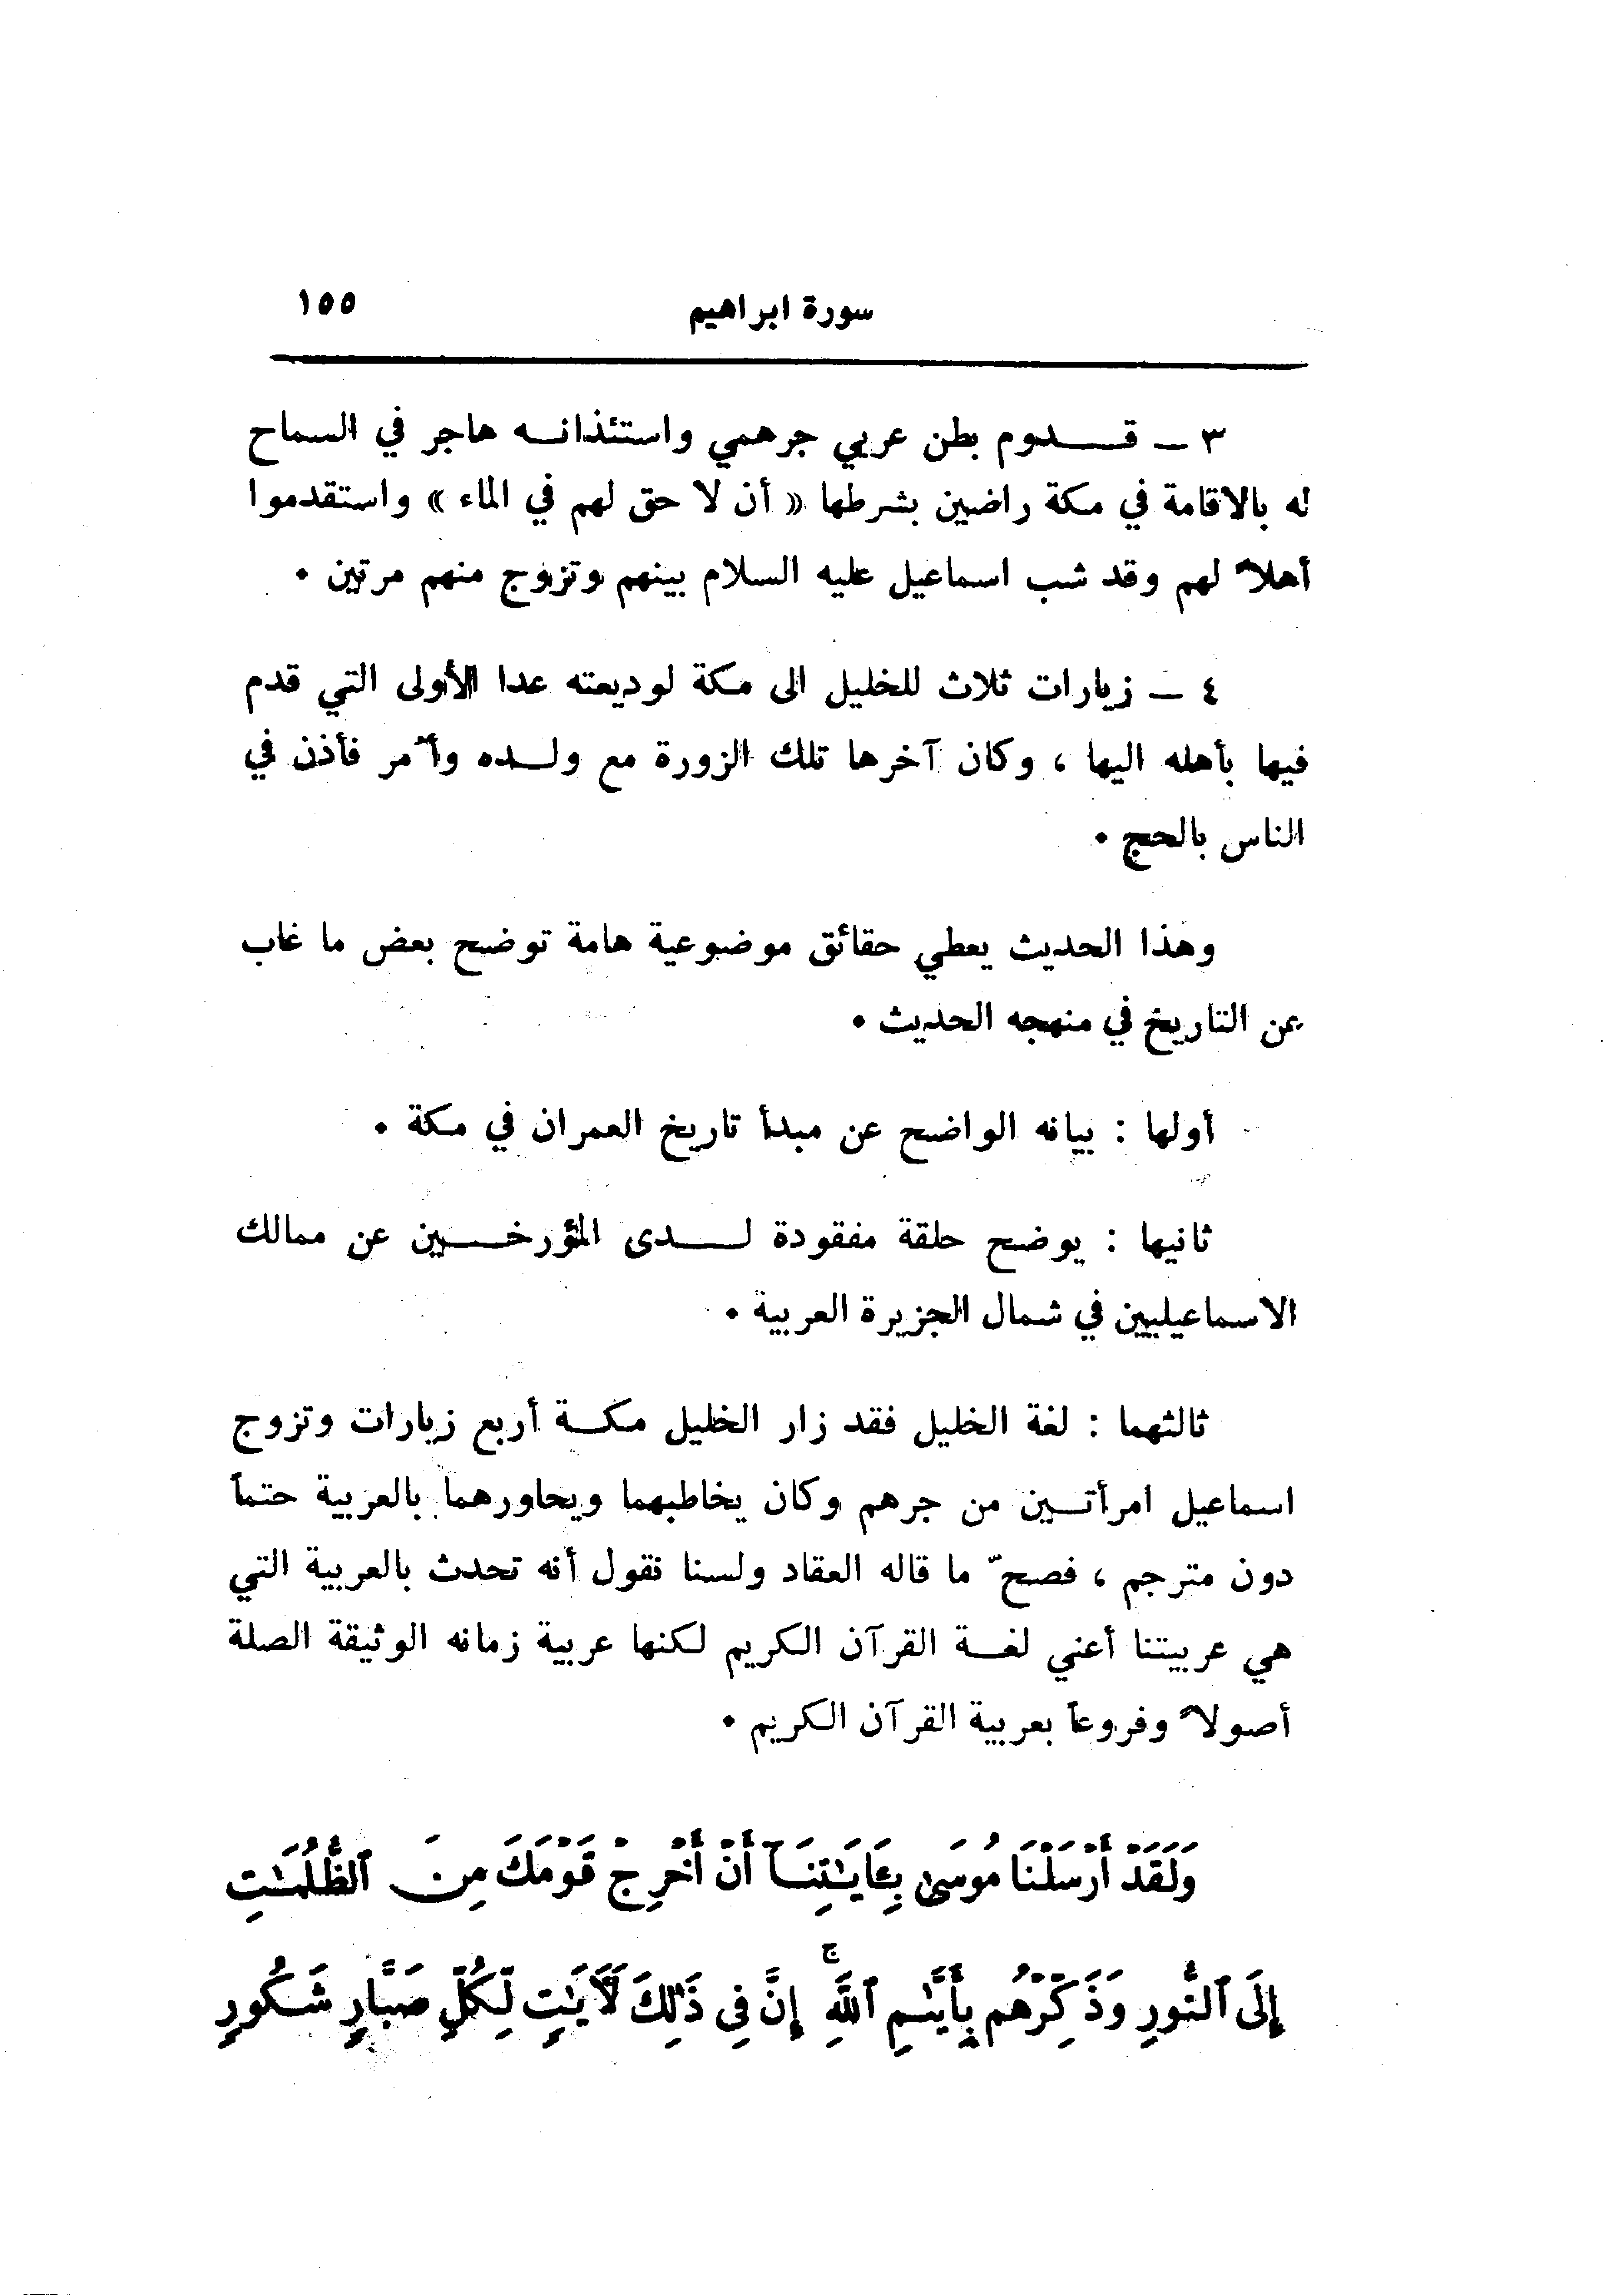 سورة ابراهيم ١٥٥
٣ – قدوم بطن عربي جرهمي واستئذانه هاجر في السماح
له بالاقامة في مكة راضين بشرطها « أن لا حق لهم في الماء » واستقدموا
أهلاً لهم وقد شب اسماعيل عليه السلام بينهم وتزوج منهم مرتين ٠
٤ – زيارات ثلاث للخليل الى مكة لوديعته عدا الأولى التي قدم
فيها بأهله اليها ، وكان آخرها تلك الزورة مع ولده وأُمر فأذن في
الناس بالحج ٠
وهذا الحديث يعطي حقائق موضوعية هامة توضح بعض ما غاب
عن التاريخ في منهجه الحديث ٠
أولها : بيانه الواضح عن مبدأ تاريخ العمران في مكة ٠
ثانيها : يوضح حلقة مفقودة لدى المؤرخين عن ممالك
الاسماعيليين في شمال الجزيرة العربية ٠
ثالثهما : لغة الخليل فقد زار الخليل مكة أربع زيارات وتزوج
اسماعيل امرأتين من جرهم وكان يخاطبهما ويحاورهما بالعربية حتماً
دون مترجم ، فصحّ ما قاله العقاد ولسنا نقول أنه تحدث بالعربية التي
هي عربيتنا أعني لغة القرآن الكريم لكنها عربية زمانه الوثيقة الصلة
أصولاً وفروعاً بعربية القرآن الكريم ٠
وَلَقَدْ أَرْسَلْنَا مُوسَىٰ بِـَٔايَـٰتِنَآ أَنْ أَخْرِجْ قَوْمَكَ مِنَ ٱلظُّلُمَـٰتِ
إِلَى ٱلنُّورِ وَذَكِّرْهُم بِأَيَّـٰمِ ٱللَّهِ ۚ إِنَّ فِى ذَٰلِكَ لَـَٔايَـٰتٍ لِّكُلِّ صَبَّارٍ شَكُورٍ